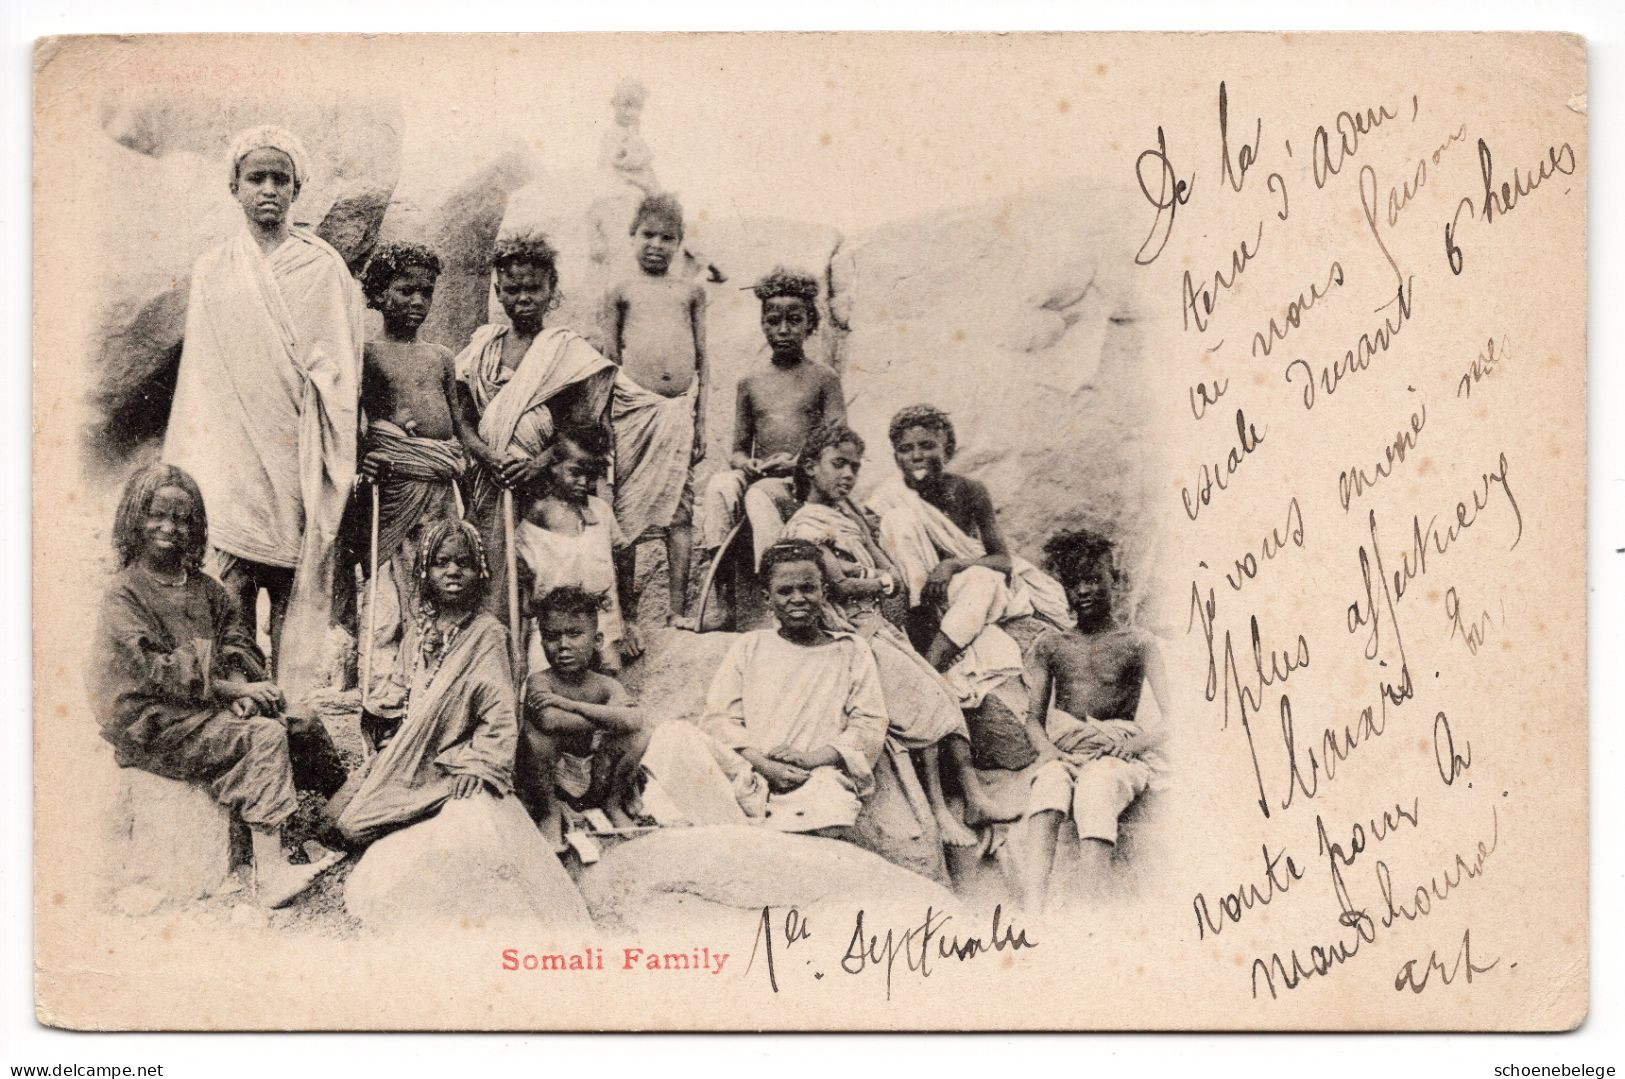 De la
terre d'Aden,
où nous faisons
escale durant 6 heures
je vous envoie mes
plus affectueux
baisers. En
route pour la
Mandchourie.
1er Septembre
Somali Family
schoenebelege
delcampe.net